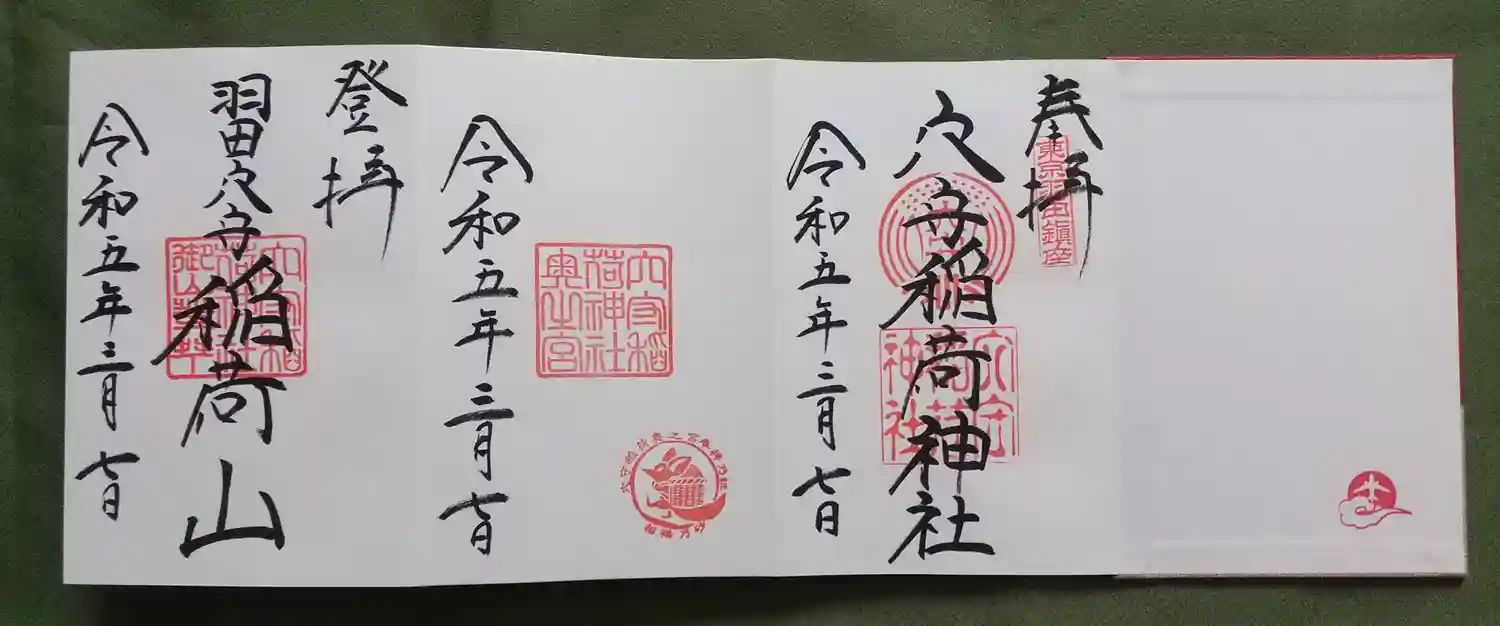 奉拝
東京羽田鎮座
穴守稲荷神社
穴守
稲荷
神社
令和五年三月七日
穴守稲
荷神社
奥之宮
招福乃砂
令和五年三月七日
登拝
羽田穴守稲荷山
穴守稲
荷神社
令和五年三月七日